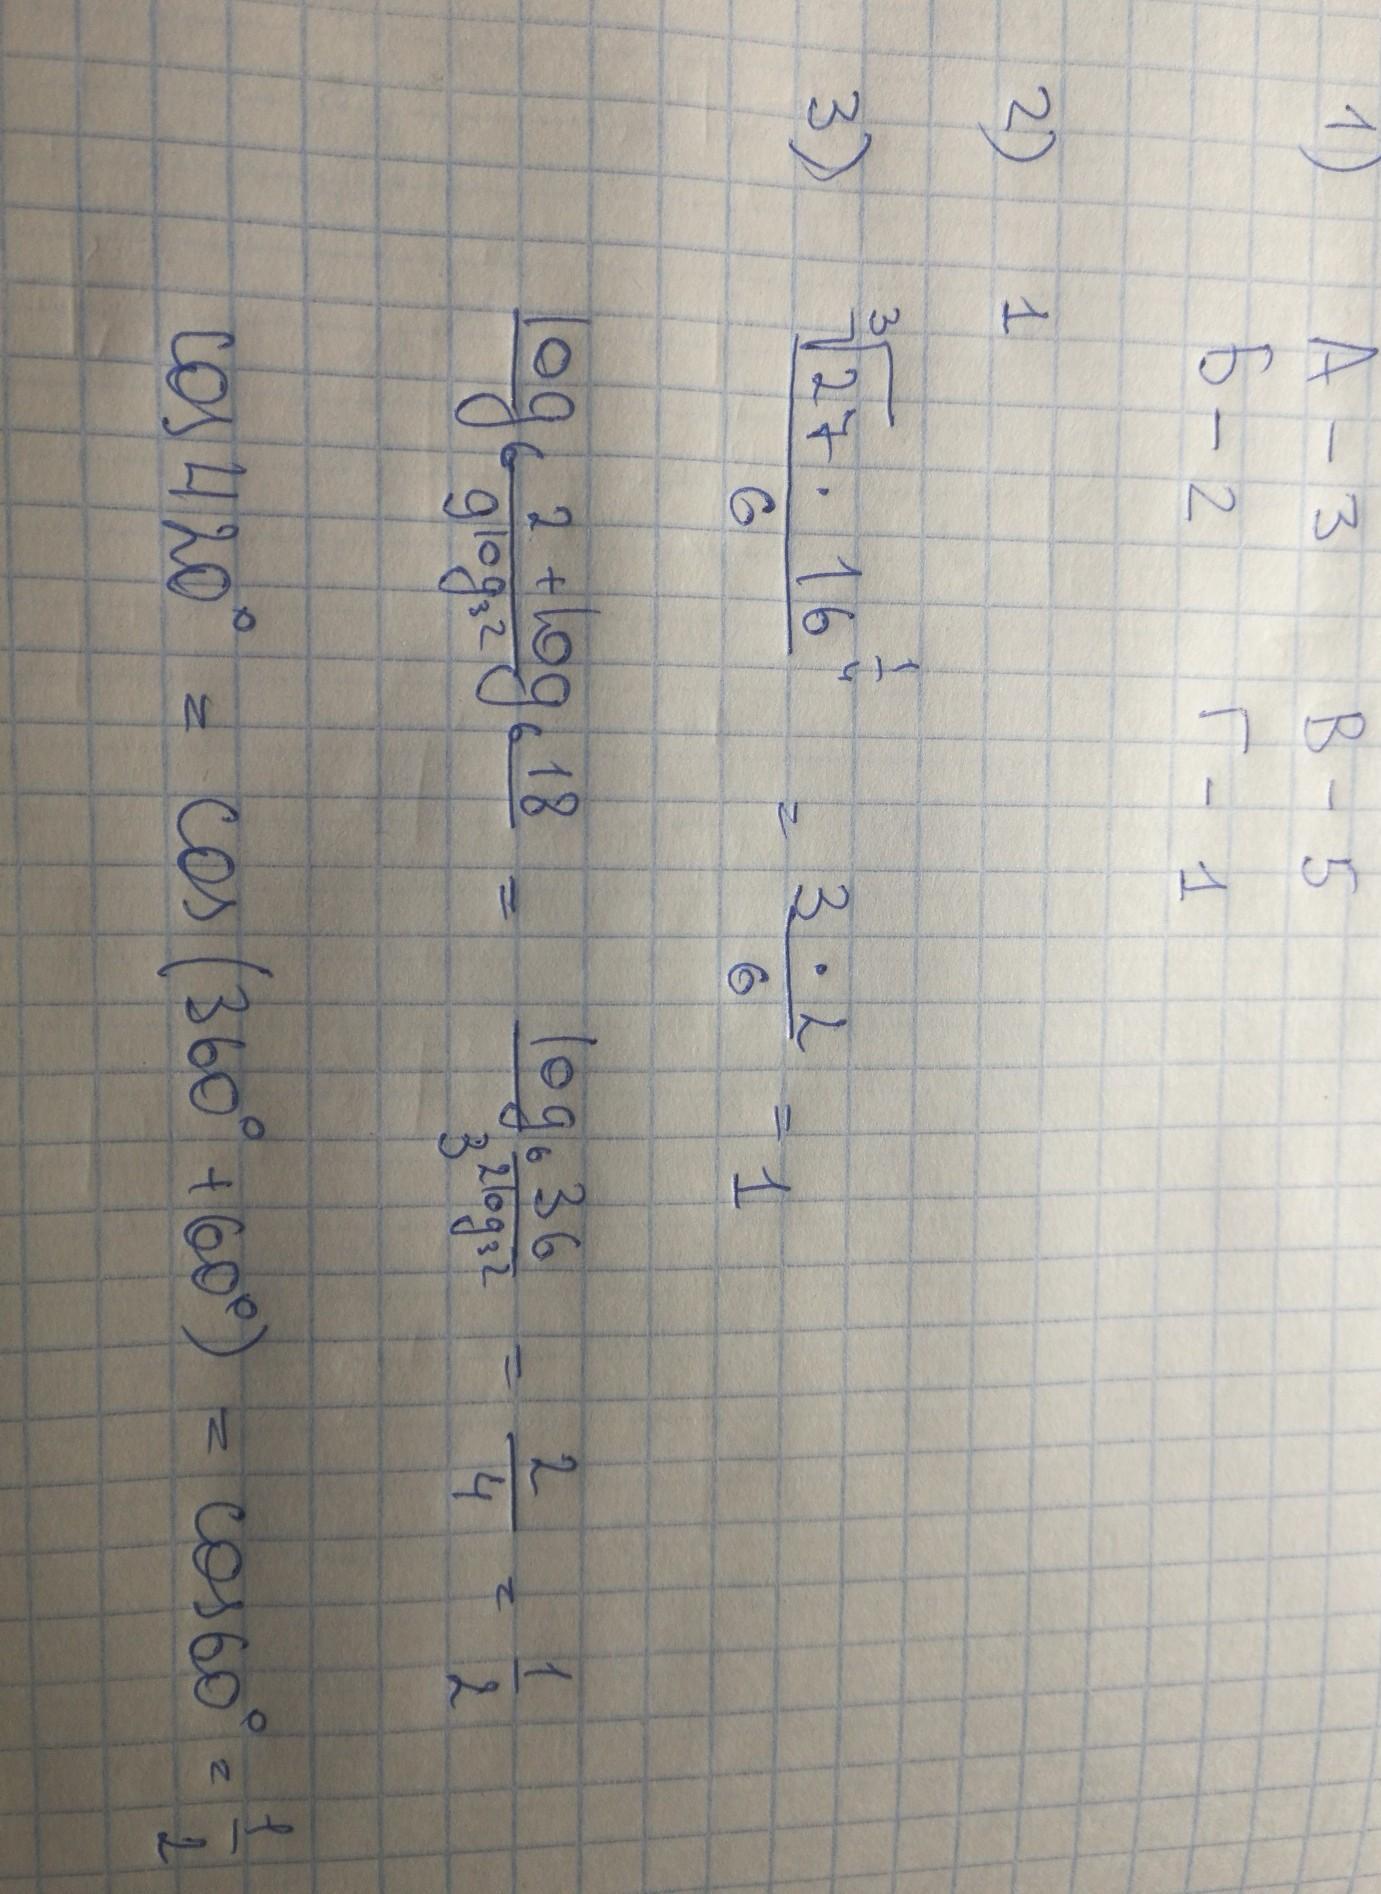 1) А – 3 В – 5
Б – 2 Г – 1
2) 1
3) ∛27 · 16^(1/4) / 6 = 3 · 2 / 6 = 1
(log₆ 2 + log₆ 18) / 9^(log₃ 2) = log₆ 36 / 3^(2log₃ 2) = 2/4 = 1/2
cos 420° = cos (360° + 60°) = cos 60° = 1/2